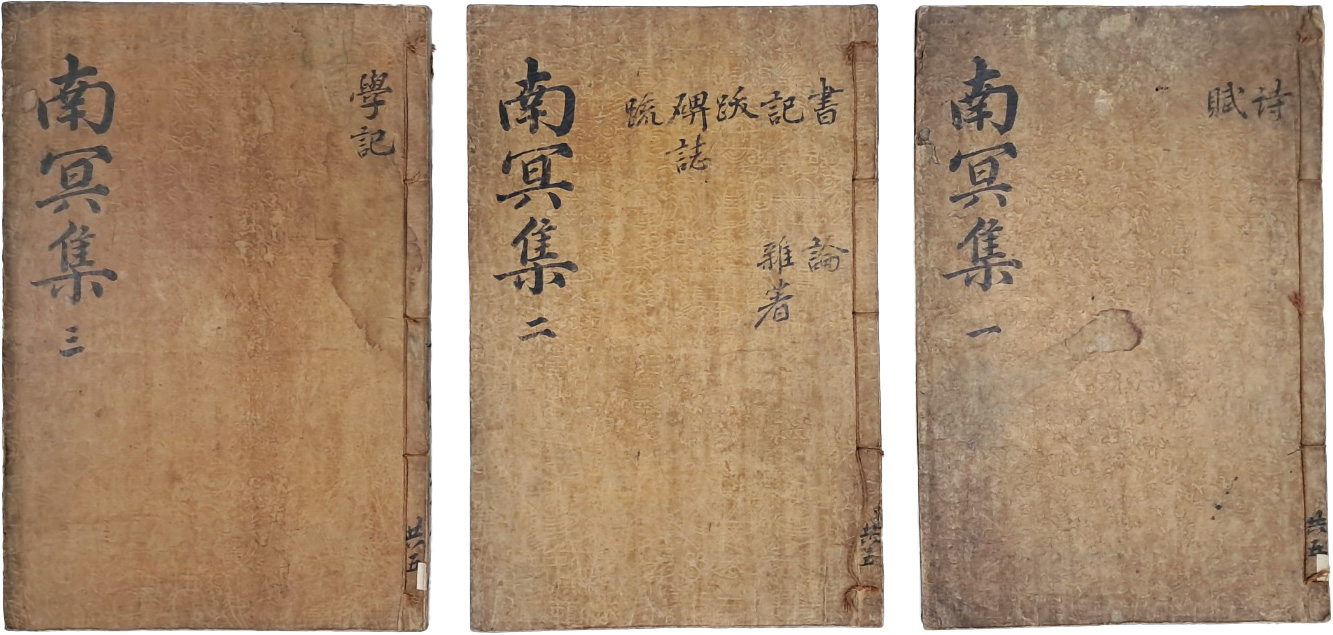 共五
詩
賦
南冥集 一
共五
書 論
記 雜著
跋
碑誌
疏
南冥集 二
共五
學記
南冥集 三